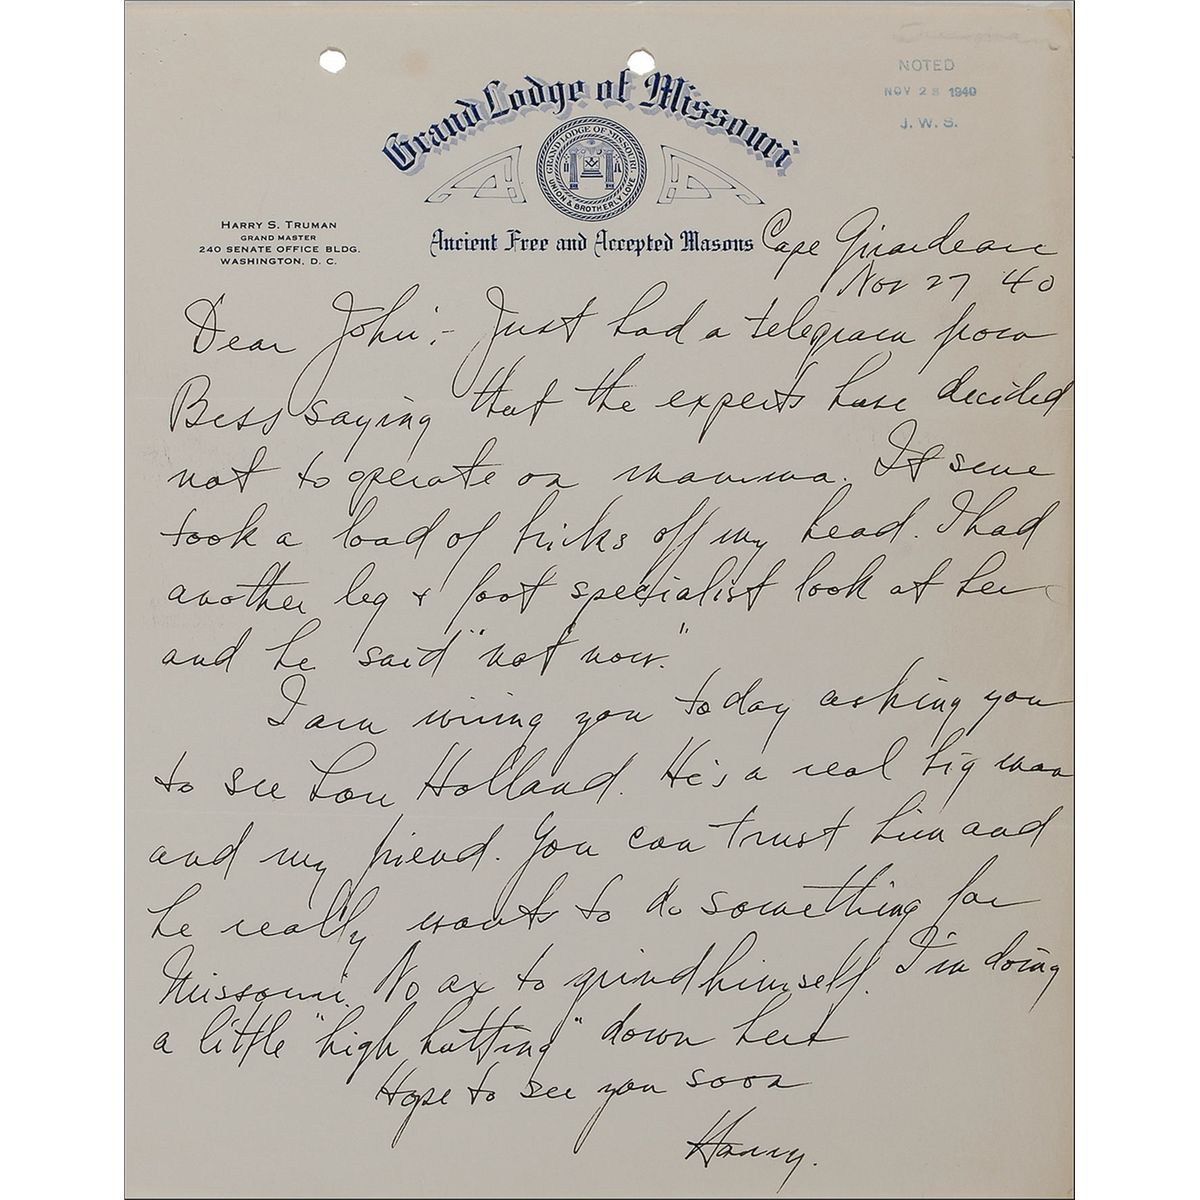 NOTED
NOV 28 1940
J. W. S.
Grand Lodge of Missouri
GRAND LODGE OF MISSOURI.
UNION & BROTHERLY LOVE
HARRY S. TRUMAN
GRAND MASTER
240 SENATE OFFICE BLDG.
WASHINGTON, D. C.
Ancient Free and Accepted Masons
Cape Girardeau
Nov 27 '40
Dear John:- Just had a telegram from
Bess saying that the experts have decided
not to operate on mamma. It sure
took a load of bricks off my head. I had
another leg & foot specialist look at her
and he said "not now."
I am wiring you today asking you
to see Lou Holland. He's a real big man
and my friend. You can trust him and
he really wants to do something for
Missouri. No ax to grind himself. I'm doing
a little "high hatting" down here
Hope to see you soon
Harry.